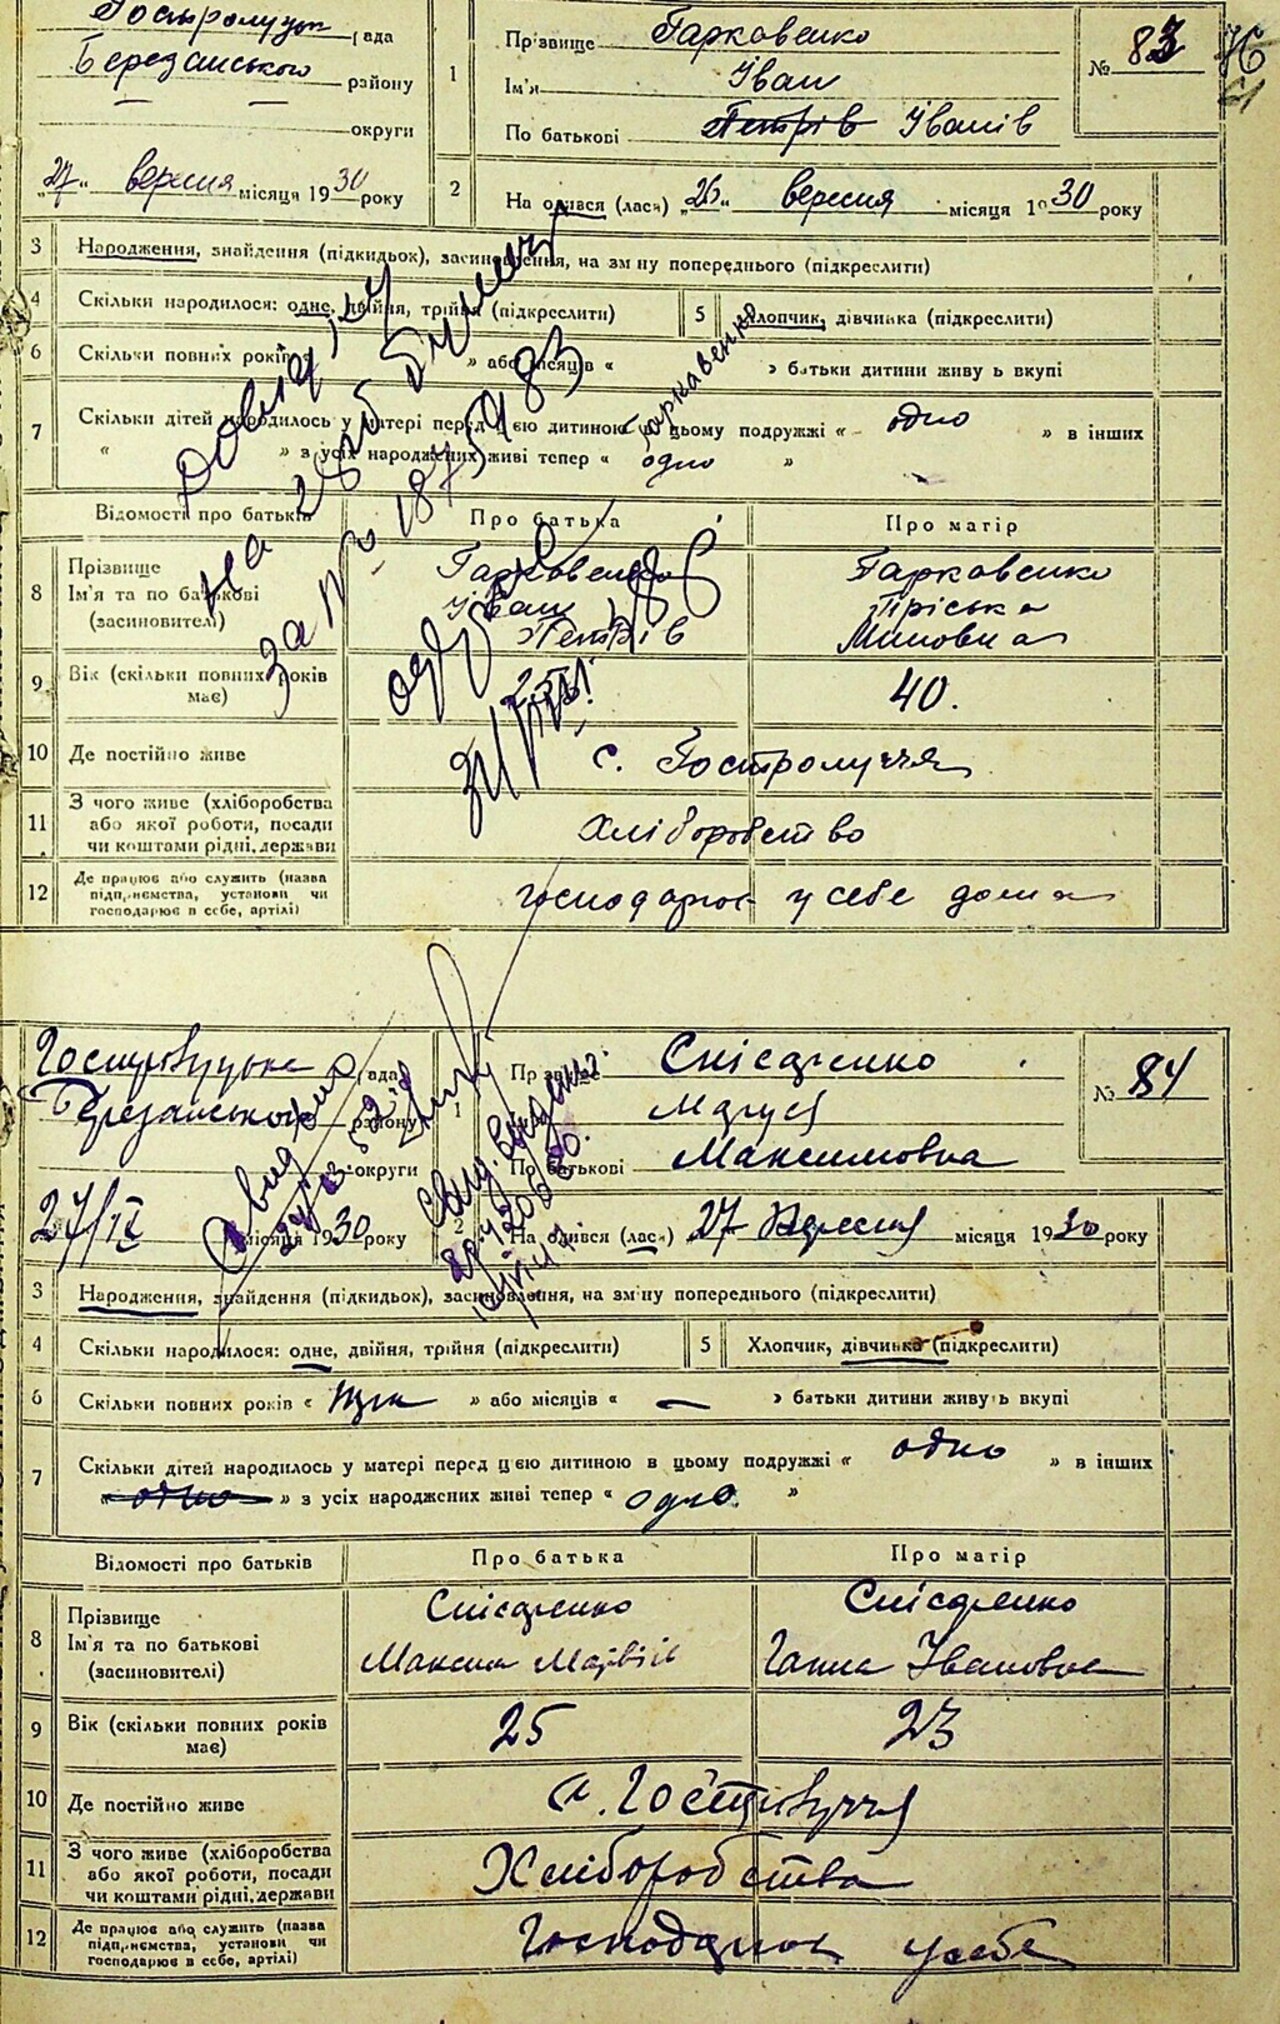 Гостролуцьк ада
Березанського району
округи
„27“ вересня місяця 1930 року
1
Прізвище Гарковенко
Ім'я Іван
По батькові Петрів Іванів
№ 83
2
На одився (лася) „26“ вересня місяця 1930 року
3 Народження, знайдення (підкидьок), засиновлення, на зміну попереднього (підкреслити)
4 Скільки народилося: одне, двійня, трійня (підкреслити)
5 Хлопчик, дівчинка (підкреслити)
6 Скільки повних років » або місяців « » батьки дитини живуть вкупі
7 Скільки дітей народилось у матері перед цією дитиною в цьому подружжі « одно » в інших
« » з усіх народжених живі тепер « одно »
Гаркавенко
на 28 руб
за № 187583
Відомості про батьків Про батька Про матір
8 Прізвище Ім'я та по батькові (засновителі)
Гарковенко Іван Петрів
Гарковенко Пріська Миновна
9 Вік (скільки повних років має) 40.
10 Де постійно живе с. Гостролуччя
11 З чого живе (хліборобства або якої роботи, посади чи коштами рідні, держави Хліборобство
12 Де працює або служить (назва підприємства, установи чи господарює в себе, артілі) господарює у себе дома
Гостролуцька ада
Березанського району
округи
27/IX місяця 1930 року
1
Прізвище Снісаренко
Маруся
По батькові Максимовна
№ 84
2
На одився (лася) 27 Вересня місяця 1930 року
3 Народження, знайдення (підкидьок), засиновлення, на зміну попереднього (підкреслити)
4 Скільки народилося: одне, двійня, трійня (підкреслити)
5 Хлопчик, дівчинка (підкреслити)
6 Скільки повних років « » або місяців « — » батьки дитини живуть вкупі
7 Скільки дітей народилось у матері перед цією дитиною в цьому подружжі « одно » в інших
« одно » з усіх народжених живі тепер « одно. »
Відомості про батьків Про батька Про матір
8 Прізвище Ім'я та по батькові (засиновителі)
Снісаренко Максим
Снісаренко Ганна Івановна
9 Вік (скільки повних років має) 25 23
10 Де постійно живе с. Гостролуччя
11 З чого живе (хліборобства або якої роботи, посади чи коштами рідні, держави Хліборобства
12 Де працює або служить (назва підприємства, установи чи господарює в себе, артілі) Господарює у себе